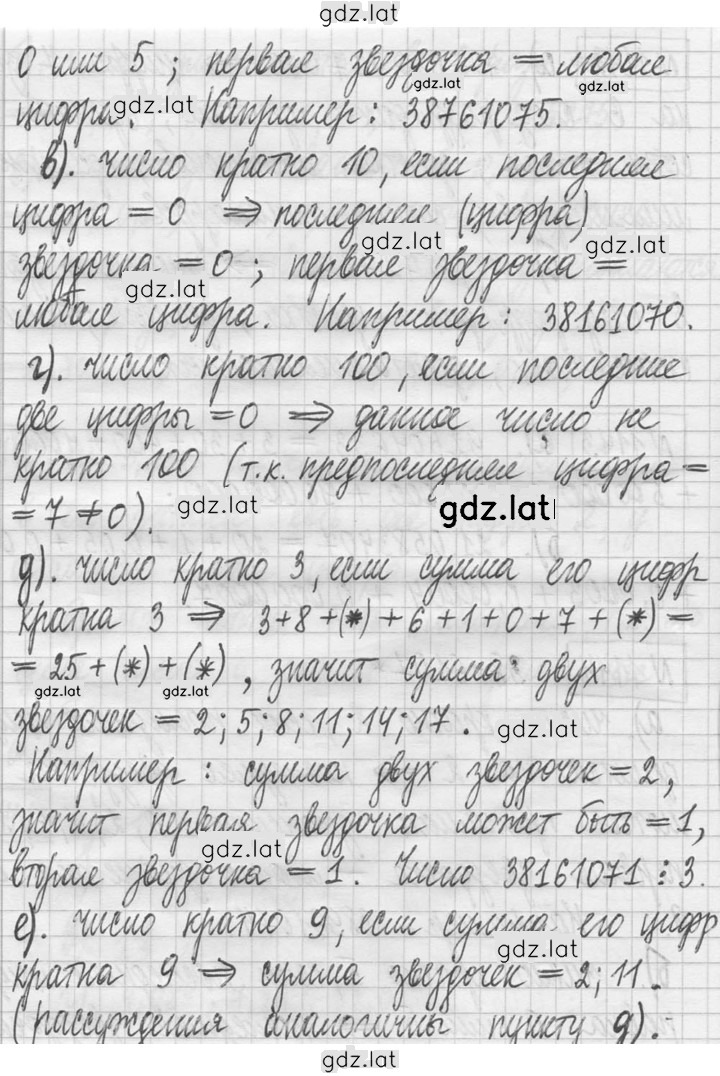 gdz.lat
0 или 5; первая звездочка = любая
gdz.lat gdz.lat
цифра. Например: 38761075.
gdz.lat
в). число кратно 10, если последняя
цифра = 0 ⇒ последняя (цифра)
gdz.lat gdz.lat
звездочка = 0; первая звездочка =
gdz.lat
любая цифра. Например: 38161070.
г). число кратно 100, если последние
две цифры = 0 ⇒ данное число не
кратно 100 (т.к. предпоследняя цифра =
= 7 ≠ 0).
gdz.lat gdz.lat
д). число кратно 3, если сумма его цифр
кратна 3 ⇒ 3+8+(*)+6+1+0+7+(*) =
= 25+(*)+(*), значит сумма двух
gdz.lat gdz.lat
звездочек = 2; 5; 8; 11; 14; 17.
gdz.lat
Например: сумма двух звездочек = 2,
значит первая звездочка может быть = 1,
gdz.lat
вторая звездочка = 1. Число 38161071 ⋮ 3.
е). число кратно 9, если сумма его цифр
gdz.lat
кратна 9 ⇒ сумма звездочек = 2; 11.
(рассуждения аналогичны пункту д).
gdz.lat